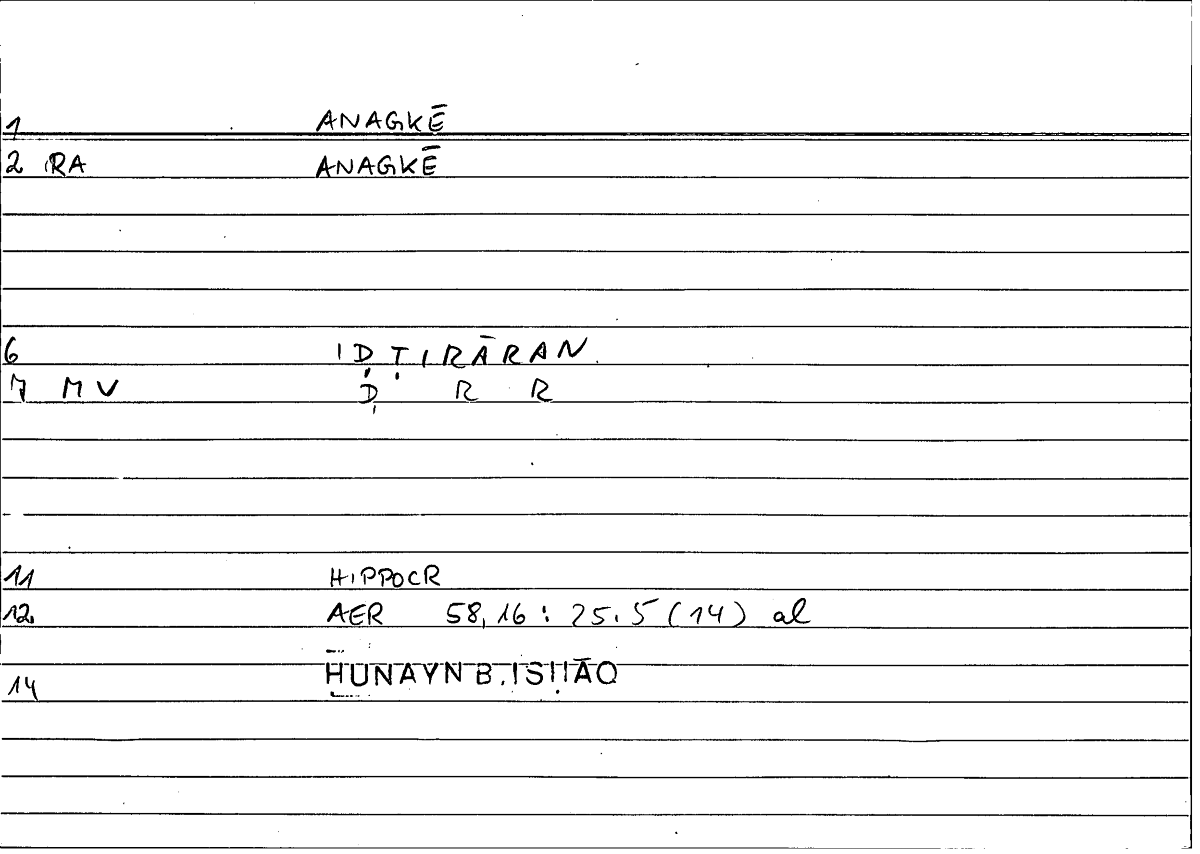 1 ANAGKĒ
2 RA ANAGKĒ
6 IḌṬIRĀRAN
7 MV Ḍ R R
11 HIPPOCR
12 AER 58,16 : 25.5 (14) al
14 ḤUNAYN B. ISḤĀQ